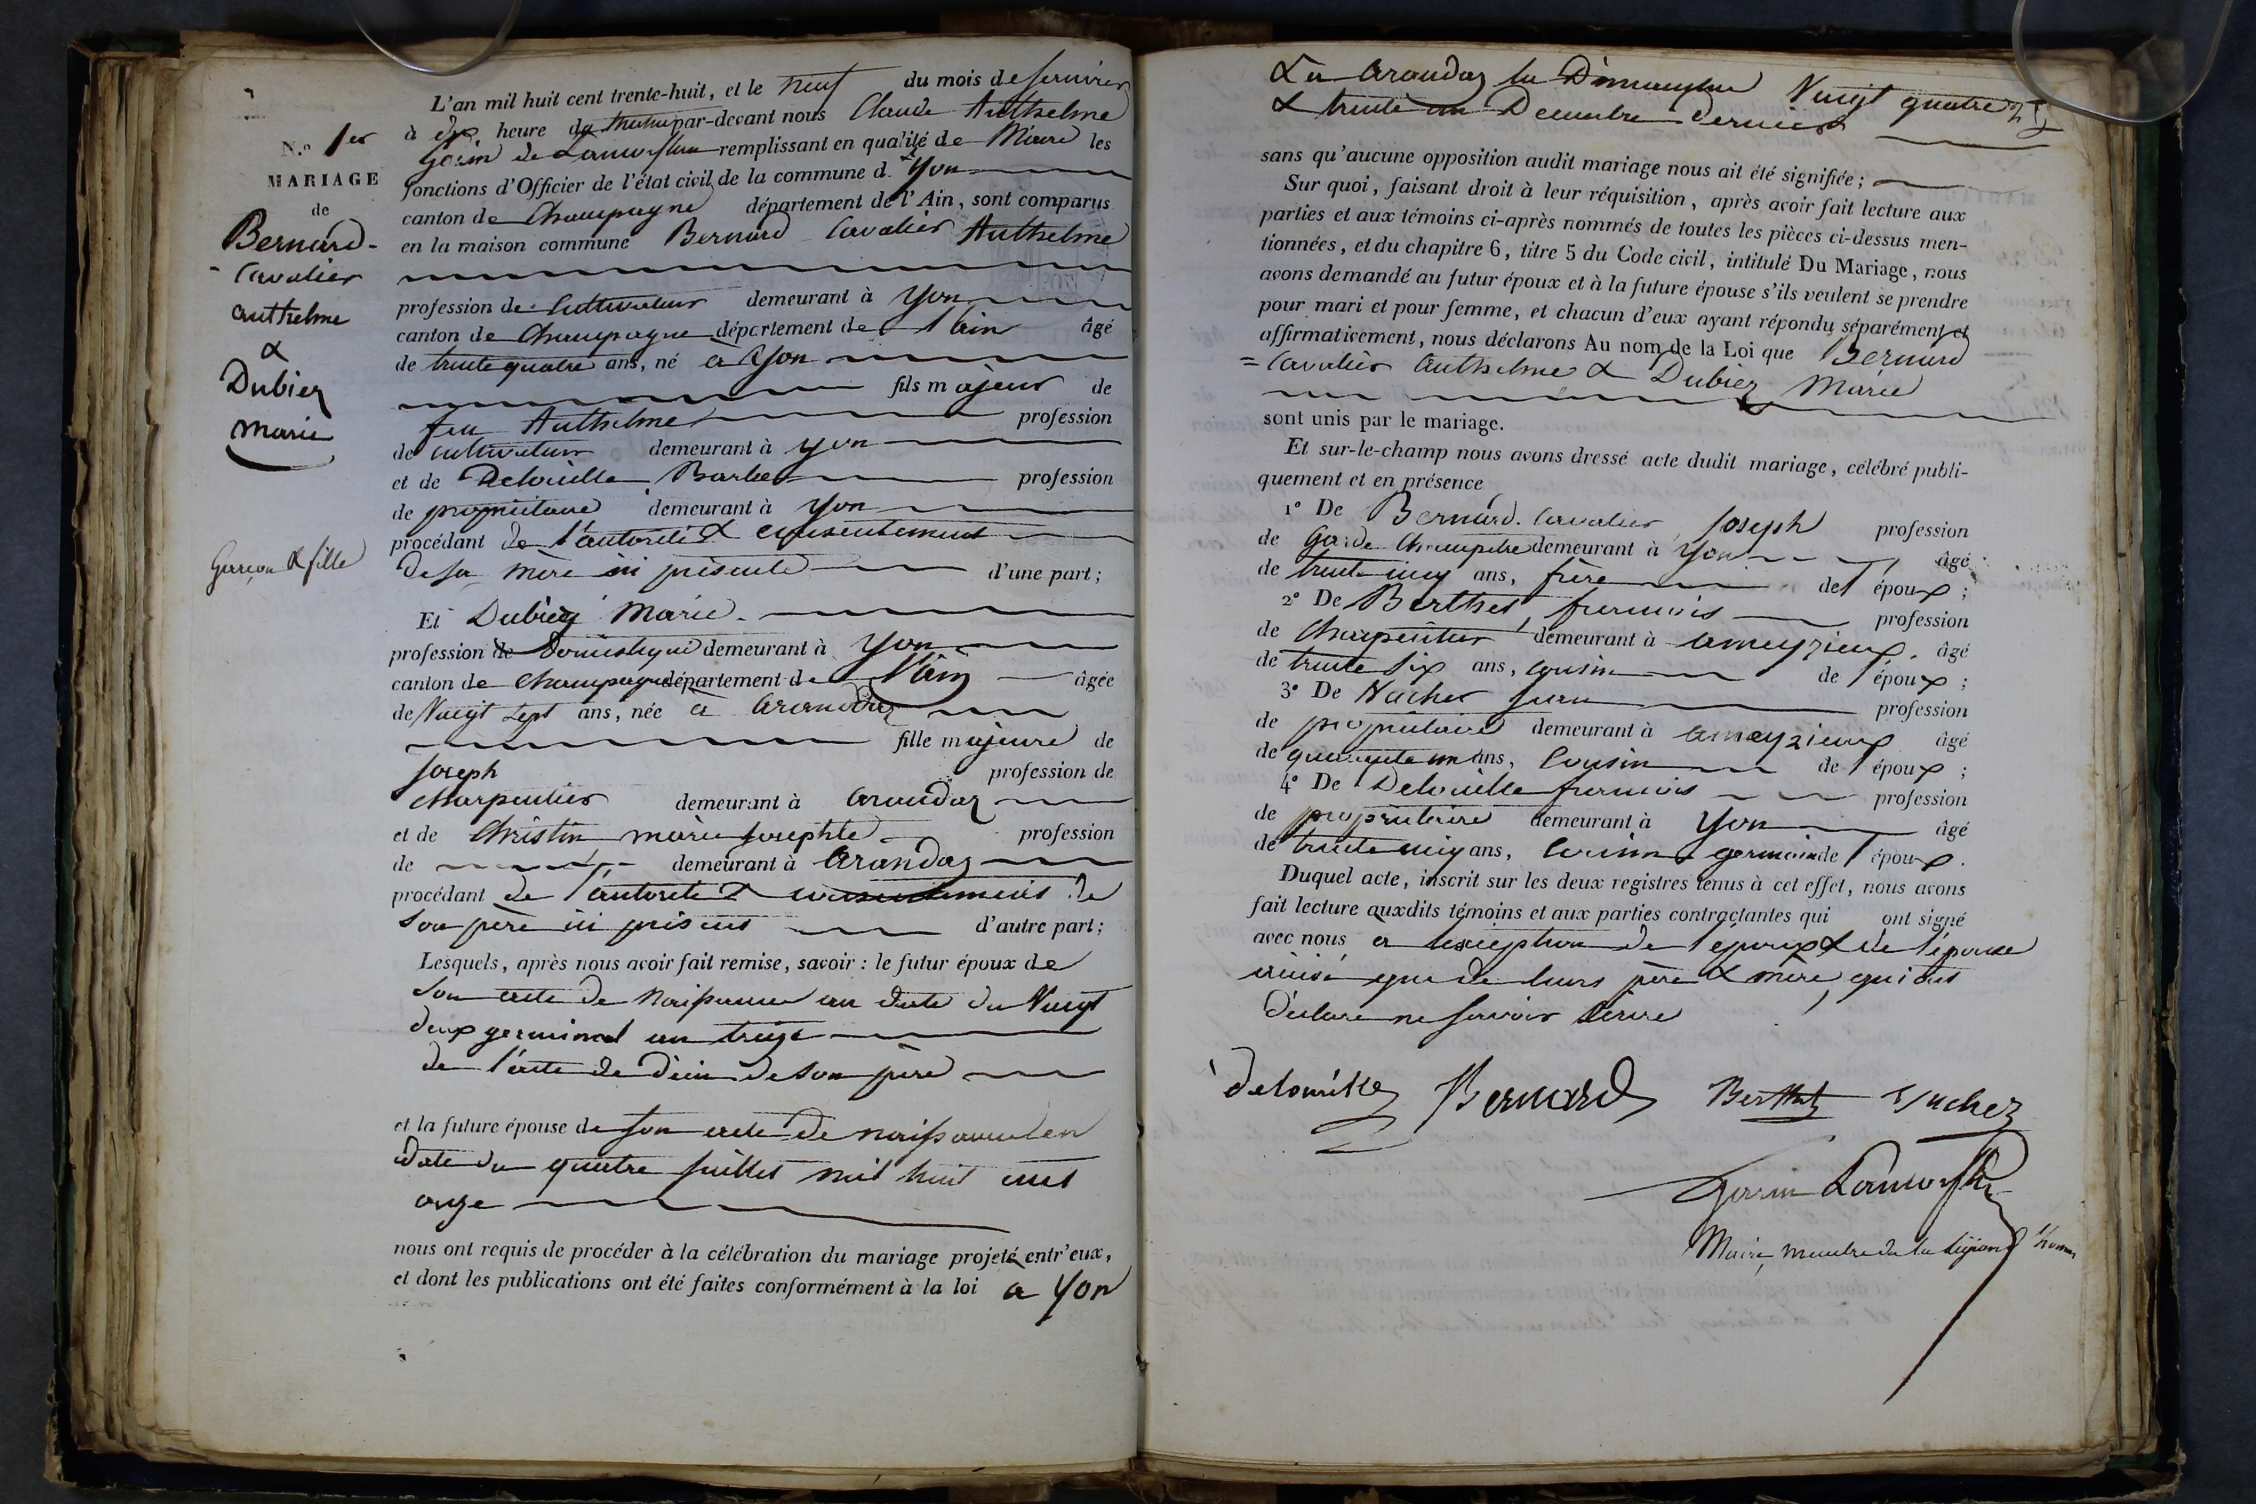 N.o 1er
MARIAGE
de
Bernard-
Cavalier
anthelme
&
Dubiez
marie
Garçon & fille
L'an mil huit cent trente-huit, et le neuf du mois de fevrier
à dix heure du matin par-devant nous Claude Anthelme
remplissant en qualité de Maire les
fonctions d'Officier de l'état civil de la commune d'Yon
canton de Champagne département de l'Ain, sont comparus
en la maison commune Bernard Cavalier Anthelme
profession de Cultivateur demeurant à Yon
canton de Champagne département de l'ain âgé
de trente quatre ans, né à Yon
fils majeur de
feu Anthelme profession
de cultivateur demeurant à Yon
et de Delouille Barbe profession
de propriétaire demeurant à Yon
procédant de l'autorité & consentement
de sa mère ici présente d'une part;
Et Dubiez Marie
profession de Domestique demeurant à Yon
canton de Champagne département de l'Ain âgée
de Vingt sept ans, née à Arandaz
fille majeure de
Joseph profession de
charpentier demeurant à Arandaz
et de Christin marie Josephte profession
de demeurant à Arandaz
procédant de l'autorité & consentement de
son père ici présent d'autre part;
Lesquels, après nous avoir fait remise, savoir: le futur époux de
son acte de naissance en date du Vingt
deux germinal an treize
de l'acte de décès de son père
et la future épouse de son acte de naissance en
date du quatre Juillet mil huit cent
onze
nous ont requis de procéder à la célébration du mariage projeté entr'eux,
et dont les publications ont été faites conformément à la loi a Yon
& a Arandaz les Dimanches Vingt quatre
& trente un Decembre dernier
sans qu'aucune opposition audit mariage nous ait été signifiée;
Sur quoi, faisant droit à leur réquisition, après avoir fait lecture aux
parties et aux témoins ci-après nommés de toutes les pièces ci-dessus men-
tionnées, et du chapitre 6, titre 5 du Code civil, intitulé Du Mariage, nous
avons demandé au futur époux et à la future épouse s'ils veulent se prendre
pour mari et pour femme, et chacun d'eux ayant répondu séparément et
affirmativement, nous déclarons Au nom de la Loi que Bernard
= Cavalier Anthelme & Dubiez Marie
sont unis par le mariage.
Et sur-le-champ nous avons dressé acte dudit mariage, célébré publi-
quement et en présence
1° De Bernard. Cavalier Joseph profession
de Garde Champetre demeurant à Yon âgé
de trente cinq ans, frère de l'époux;
2° De Berthet francois profession
de Charpentier demeurant à ameyzieux. âgé
de trente six ans, cousin de l'époux;
3° De profession
de propriétaire demeurant à ameyzieux âgé
de quarante un ans, Cousin de l'époux;
4° De Delouille francois profession
de propriétaire demeurant à Yon âgé
de trente cinq ans, Cousin germain de l'époux.
Duquel acte, inscrit sur les deux registres tenus à cet effet, nous avons
fait lecture auxdits témoins et aux parties contractantes qui ont signé
avec nous à l'exception de l'époux & de l'épouse
ainsi que de leurs père & mère, qui ont
déclaré ne savoir écrire
delouille Bernard Berthet
Maire, membre de la légion d'honneur